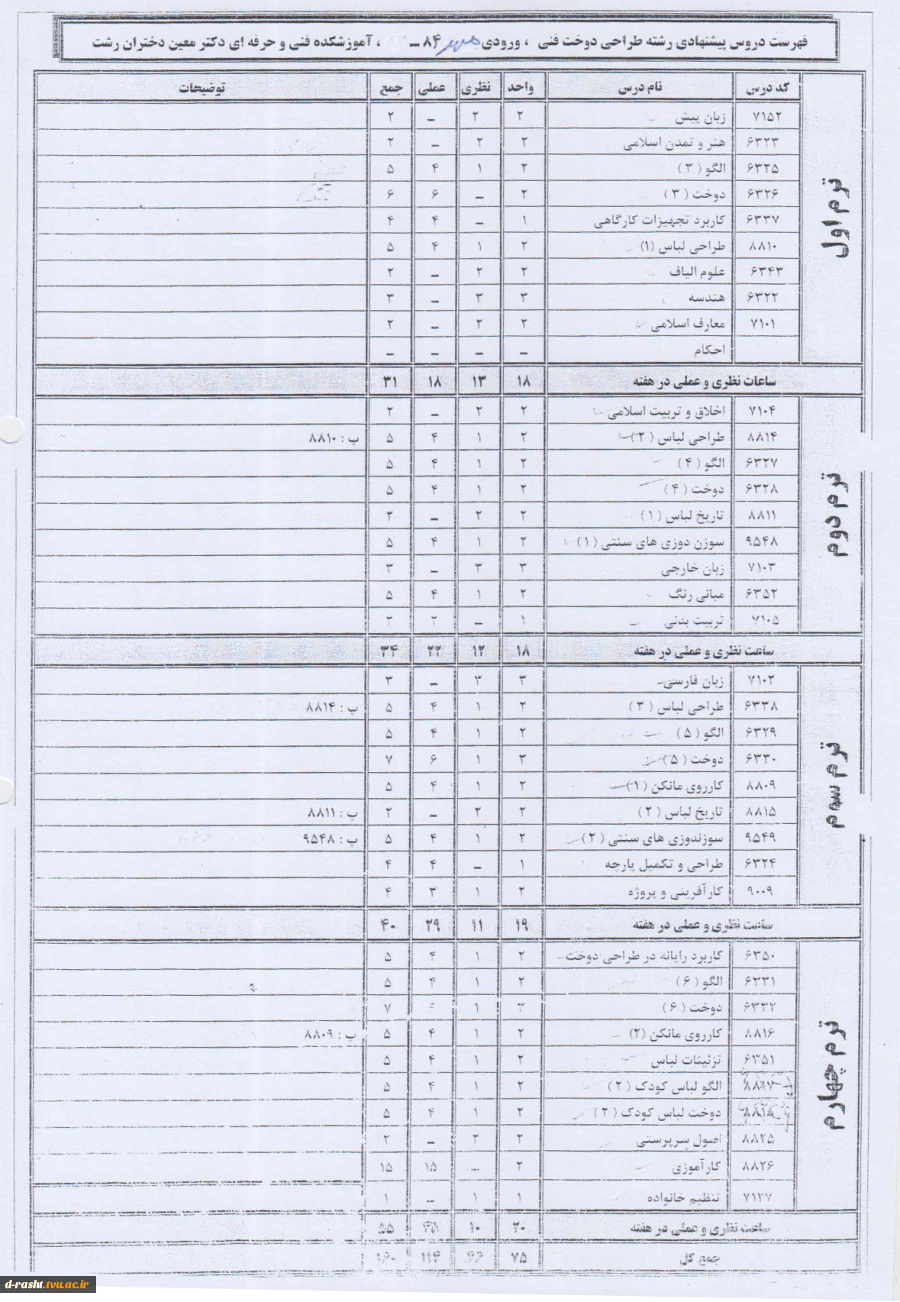 فهرست دروس پیشنهادی رشته طراحی دوخت فنی ، ورودی مهر ۸۴ ــ ، آموزشکده فنی و حرفه ای دکتر معین دختران رشت
کد درس نام درس واحد نظری عملی جمع توضیحات
ترم اول
۷۱۵۲ زبان پیش ۲ ۲ ـ ۲
۶۳۲۳ هنر و تمدن اسلامی ۲ ۲ ـ ۲
۶۳۲۵ الگو ( ۳ ) ۲ ۱ ۴ ۵
۶۳۲۶ دوخت ( ۳ ) ۲ ـ ۶ ۶
۶۳۳۷ کاربرد تجهیزات کارگاهی ۱ ـ ۴ ۴
۸۸۱۰ طراحی لباس (۱) ۲ ۱ ۴ ۵
۶۳۴۳ علوم الیاف ۲ ۲ ـ ۲
۶۳۲۲ هندسه ۳ ۳ ـ ۳
۷۱۰۱ معارف اسلامی ۲ ۲ ـ ۲
احکام ـ ـ ـ ـ
ساعات نظری و عملی در هفته ۱۸ ۱۳ ۱۸ ۳۱
ترم دوم
۷۱۰۴ اخلاق و تربیت اسلامی ۲ ۲ ـ ۲
۸۸۱۴ طراحی لباس ( ۲ ) ۲ ۱ ۴ ۵ پ : ۸۸۱۰
۶۳۲۷ الگو ( ۴ ) ۲ ۱ ۴ ۵
۶۳۲۸ دوخت ( ۴ ) ۲ ۱ ۴ ۵
۸۸۱۱ تاریخ لباس ( ۱ ) ۲ ۲ ـ ۲
۹۵۴۸ سوزن دوزی های سنتی ( ۱ ) ۲ ۱ ۴ ۵
۷۱۰۳ زبان خارجی ۳ ۳ ـ ۳
۶۳۵۲ مبانی رنگ ۲ ۱ ۴ ۵
۷۱۰۵ تربیت بدنی ۱ ـ ۲ ۲
ساعت نظری و عملی در هفته ۱۸ ۱۲ ۲۲ ۳۴
ترم سوم
۷۱۰۲ زبان فارسی ۳ ۳ ـ ۳
۶۳۳۸ طراحی لباس ( ۳ ) ۲ ۱ ۴ ۵ پ : ۸۸۱۴
۶۳۲۹ الگو ( ۵ ) ۲ ۱ ۴ ۵
۶۳۳۰ دوخت ( ۵ ) ۳ ۱ ۶ ۷
۸۸۰۹ کارروی مانکن ( ۱ ) ۲ ۱ ۴ ۵
۸۸۱۵ تاریخ لباس ( ۲ ) ۲ ۲ ـ ۲ پ : ۸۸۱۱
۹۵۴۹ سوزندوزی های سنتی ( ۲ ) ۲ ۱ ۴ ۵ پ : ۹۵۴۸
۶۳۲۴ طراحی و تکمیل پارچه ۱ ـ ۴ ۴
۹۰۰۹ کارآفرینی و پروژه ۲ ۱ ۳ ۴
ساعت نظری و عملی در هفته ۱۹ ۱۱ ۲۹ ۴۰
ترم چهارم
۶۳۵۰ کاربرد رایانه در طراحی دوخت ۲ ۱ ۴ ۵
۶۳۳۱ الگو ( ۶ ) ۲ ۱ ۴ ۵
۶۳۳۲ دوخت ( ۶ ) ۱ ۷
۸۸۱۶ کارروی مانکن (۲) ۲ ۱ ۴ ۵ پ : ۸۸۰۹
۶۳۵۱ تزئینات لباس ۲ ۱ ۴ ۵
۸۸۱۷ الگو لباس کودک ( ۲ ) ۲ ۱ ۴ ۵
۸۸۱۸ دوخت لباس کودک ( ۲ ) ۲ ۱ ۴ ۵
۸۸۲۵ اصول سرپرستی ۲ ۲ ـ ۲
۸۸۲۶ کارآموزی ۲ ـ ۱۵ ۱۵
۷۱۲۷ تنظیم خانواده ۱ ۱ ـ ۱
ساعت نظری و عملی در هفته ۲۰ ۱۰ ۴۵ ۵۵
جمع کل ۷۵ ۴۶ ۱۱۴ ۱۶۰
d-rasht.tvu.ac.ir